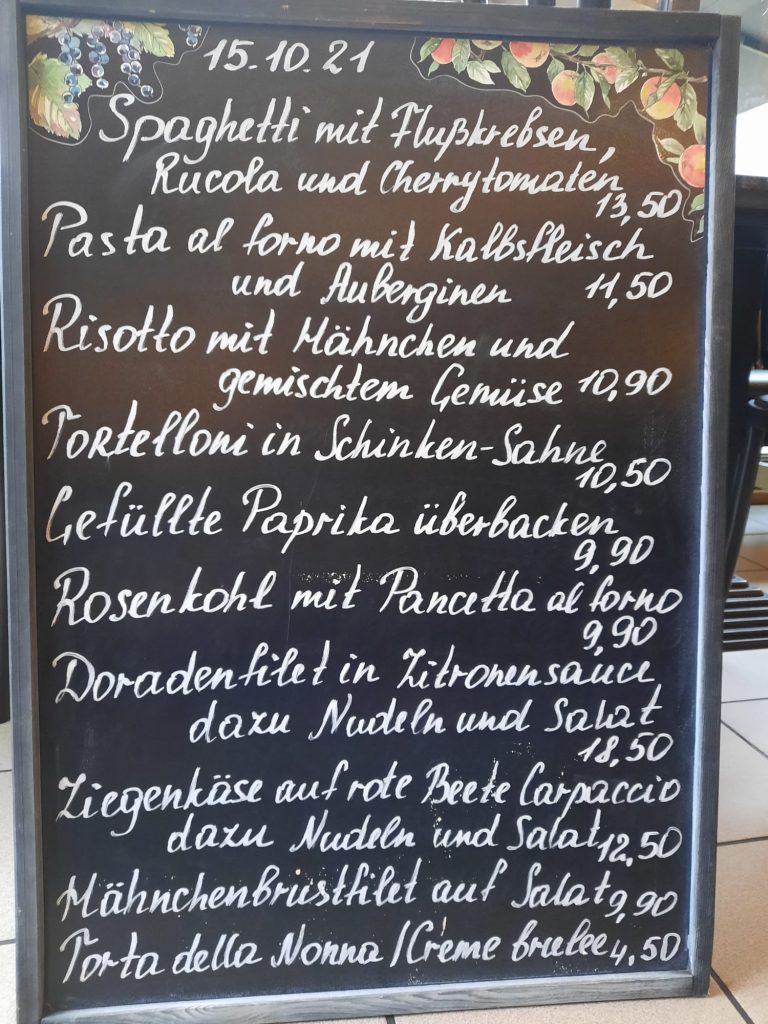 15.10.21
Spaghetti mit Flußkrebsen,
Rucola und Cherrytomaten
13,50
Pasta al forno mit Kalbsfleisch
und Auberginen 11,50
Risotto mit Hähnchen und
gemischtem Gemüse 10,90
Tortelloni in Schinken-Sahne
10,50
Gefüllte Paprika überbacken
9,90
Rosenkohl mit Pancetta al forno
9,90
Doradenfilet in Zitronensauce
dazu Nudeln und Salat
18,50
Ziegenkäse auf rote Beete Carpaccio
dazu Nudeln und Salat 12,50
Hähnchenbrustfilet auf Salat 9,90
Torta della Nonna /Creme brulee 4,50